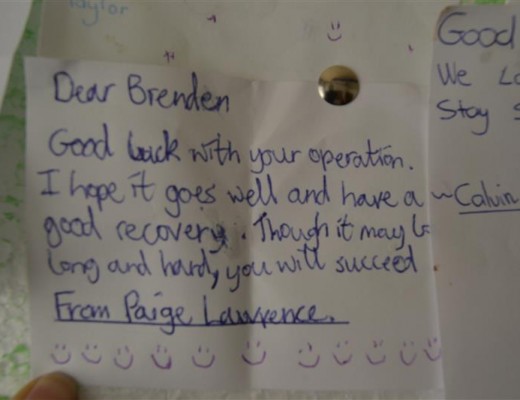 Taylor
Dear Brenden
Good luck with your operation.
I hope it goes well and have a
good recovery. Though it may be
long and hard, you will succeed
From Paige Lawrence.
Good
We
Stay
~Calvin